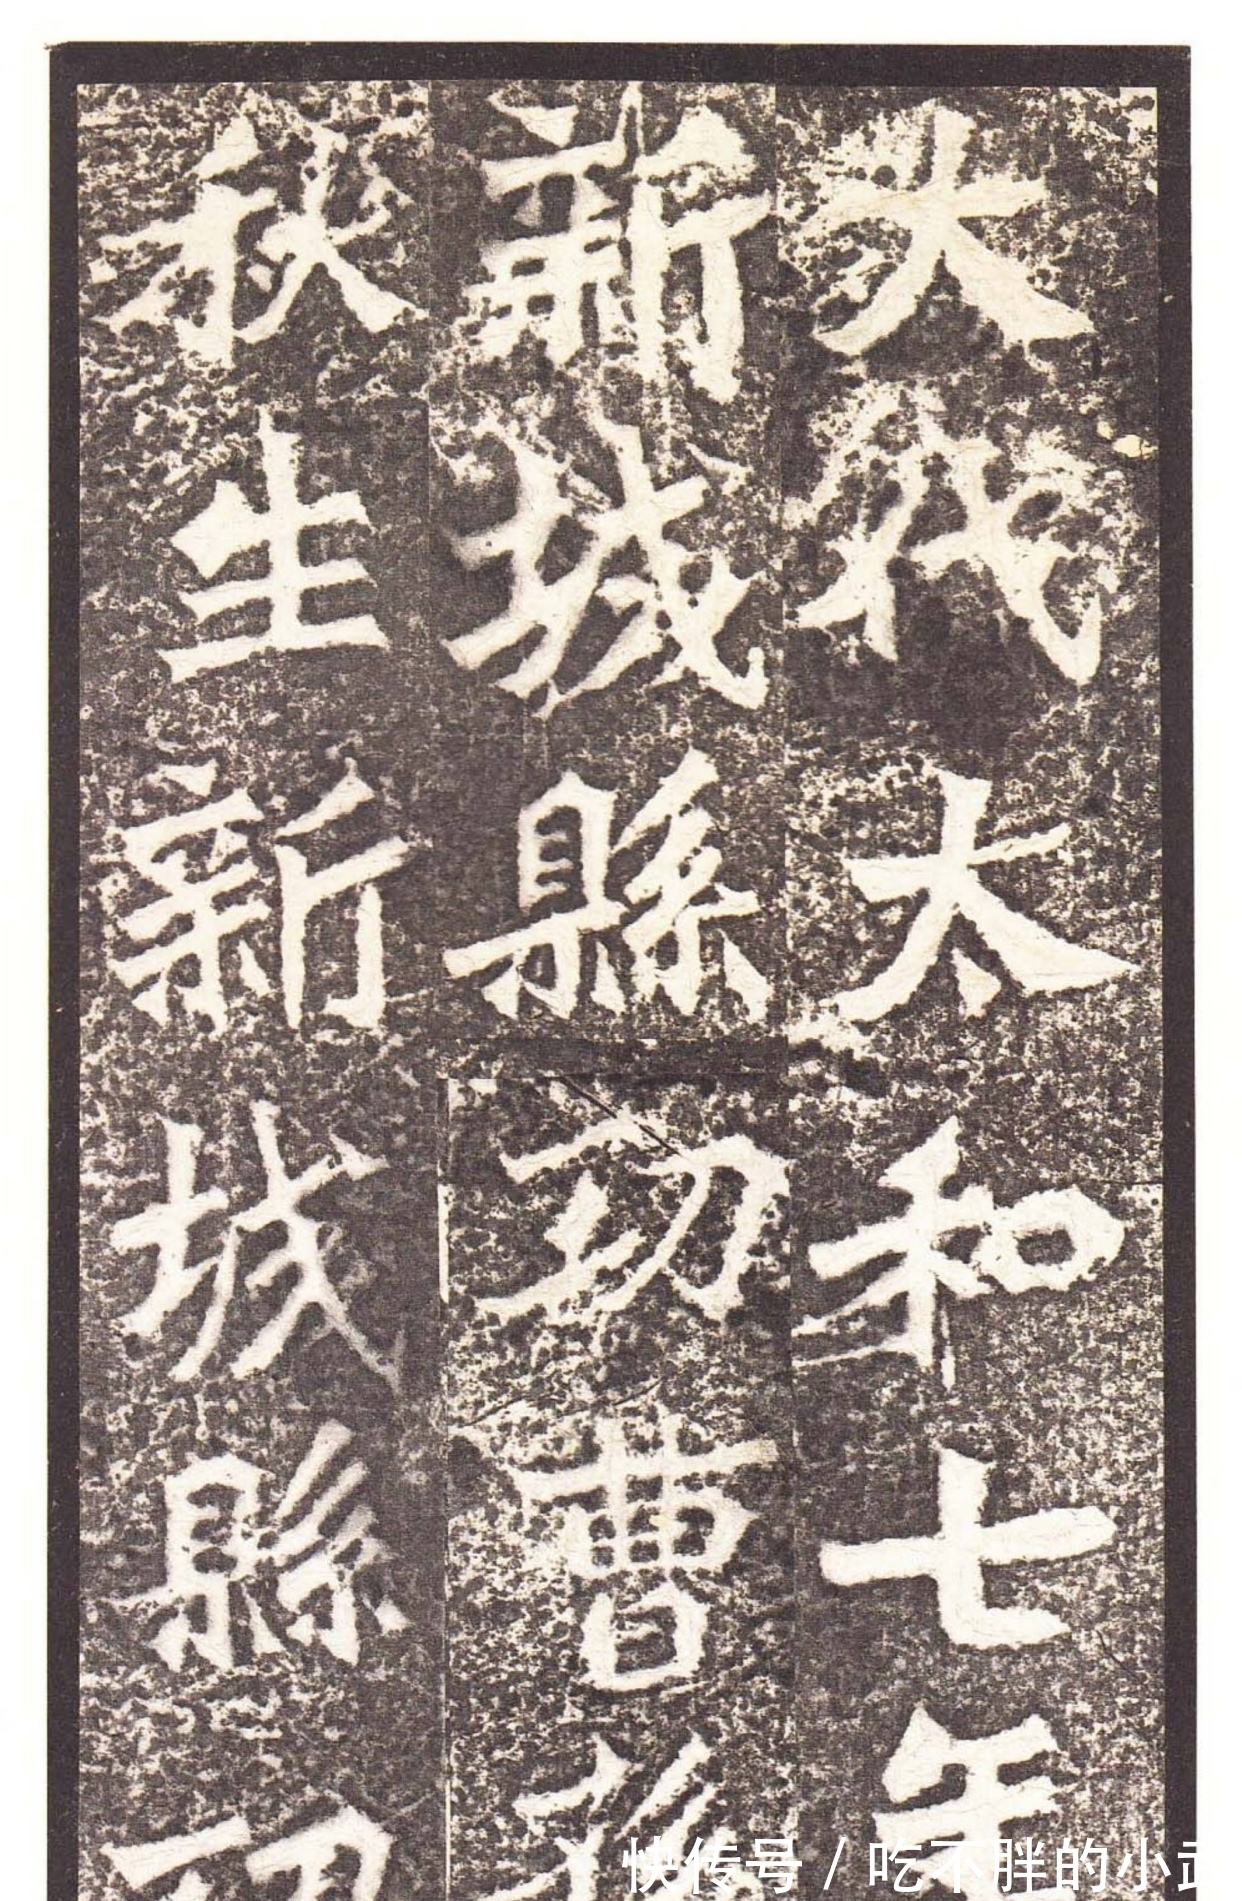 大代太和七年
新城縣功曹孫
秋生新城縣功
快传号 / 吃不胖的小武